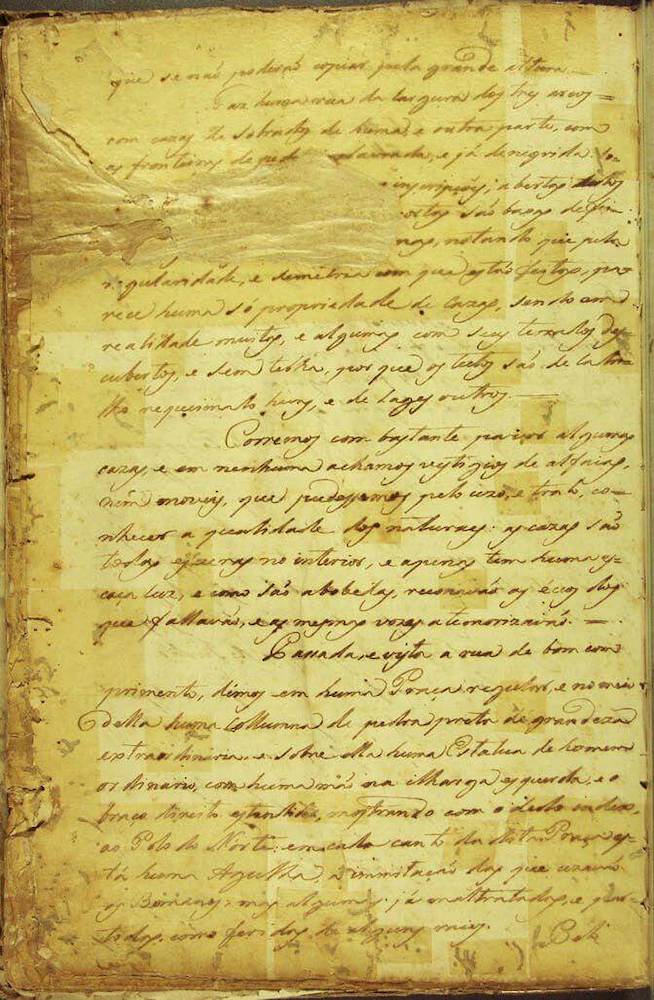 que se não poderão copiar pela grande altura.
Faz huma rua da largura dos tres arcos
com cazas de sobrados de huma, e outra parte, com
as fronteiras de ped lavrada, e já denegrida. So-
inscripções, abertas todas
ortas são baxas de fei-
nas, notando que pela
regularidade, e semetria com que estão feitas, pa-
rece huma só propriedade de cazas, sendo em
realidade muitas, e algumas com seus terrados des-
cubertos, e sem telha, porque os tectos são de ladri-
lho requeimado huns, e de lages outros.
Corremos com bastante pavor algumas
cazas, e em nenhuma achamos vestigios de alfaias,
nem moveis, que pudessemos pelo uzo, e trato, co-
nhecer a qualidade dos naturaes: as cazas são
todas escuras no interior, e apenas tem huma es-
caça luz, e como são abobedas, resoavão os écos dos
que fallavão, e as mesmas vozes atemorizavão.
Passada, e vista a rua de bom com-
primento, dimos em huma Praça regular, e no meio
della huma collumna de pedra preta de grandeza
extraordinaria, e sobre ella huma Estatua de homem
ordinario, com huma mão na ilharga esquerda, e o
braço direito estendido, mostrando com o dedo index
ao Polo do Norte: em cada canto da dita Praça es-
tá huma Agulha, a immitação das que uzavão
os Romanos, mas algumas já maltratadas, e par-
tidas, como feridas de alguns raios.